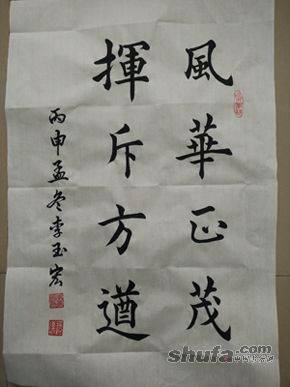 風華正茂
揮斥方遒
丙申孟冬李玉宏
shufa.com